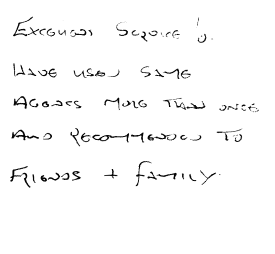 Excellent Service!
Have used same
Agents more than once
And recommended to
Friends + family.